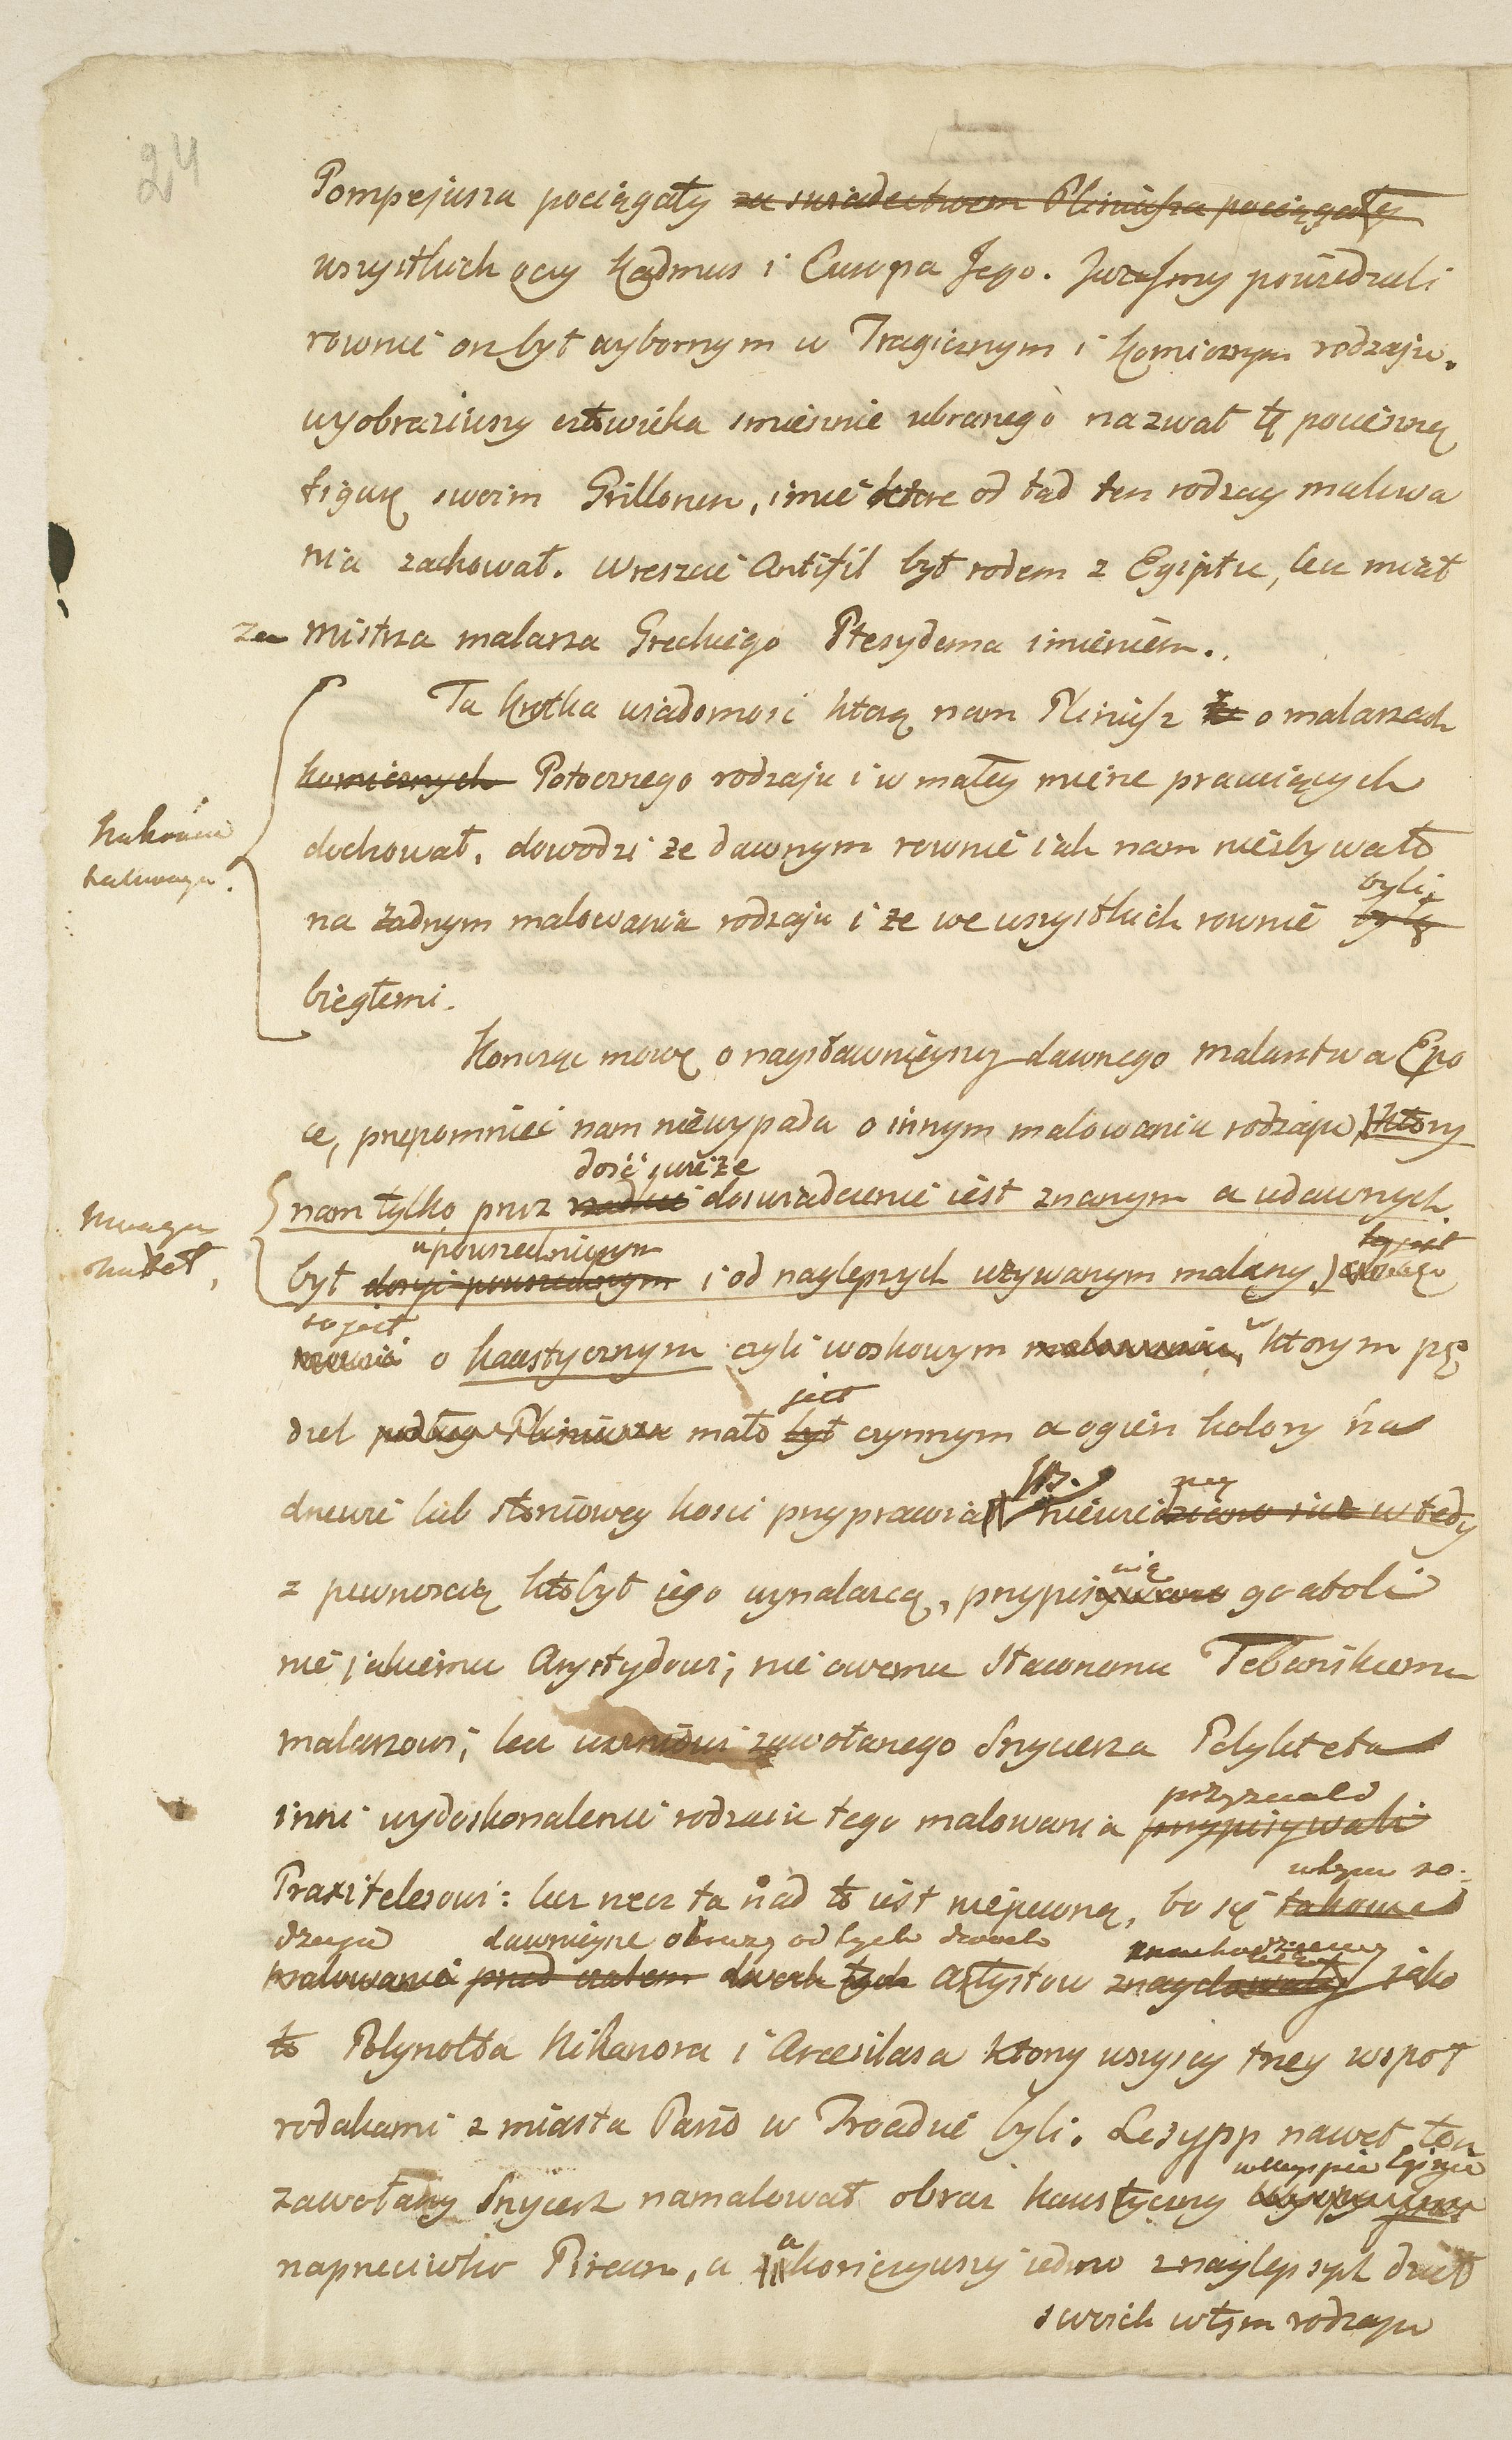 24
Pompejusza pociągały za swiadectwem Pliniusza pociągały
wszystkich oczy Kadmus i Europa Jego. Jużeśmy powiedzieli
rownie on był wybornym w Tragicznym i Komicznym rodzaju.
wyobraziwszy człowieka smiesznie ubranego nazwał tę pocieszną
figurę swoim Grillonem, imie ktore od tąd ten rodzay malowa
nia zachował. Wreszcie Antifil był rodem z Egiptu, lecz miał
za mistrza malarza Greckiego Ptesydema imieniem.
Ta krotka wiadomosc ktorą nam Pliniusz to o malarzach
komicznych Potocznego rodzaju i w małey mierze pracuiących
dochował, dowodzi że dawnym rownie iak nam niezbywało
byli
na żadnym malowania rodzaju i że we wszystkich rownie byłą
biegłemi.
Koncząc mowę o naysławnieyszey dawnego malarstwa Epo
ce, przepomniec nam niewypada o innym malowania rodzaju, ktory
dość swieże
nam tylko przez doswiadczenie iest znanym a udawnych
upowszechnionym
był dosyć powszechnym i od naylepszych używanym malarzy,
to jest
o kaustycznym czyli woskowym malowaniu, w ktorym pę
jest
dzel podług Pliniusza mało był czynnym a ogień kolory na
drzewie lub słoniowey kosci przyprawiał niewiedziano iuż wtedy
się
z pewnoscią kto był iego wynalazcą, przypisywano go atoli
nieiakiemu Arystydowi, nie owemu sławnemu Tebańskiemu
malarzowi, lecz uczniowi zawołanego Snycerza Polykteta
przyznało
inni wydoskonalenie rodzaiu tego malowania przypisywali
Praxitelesowi: lecz rzecz ta nad to iest niepewną, bo się takowe
dzaju dawnieysze obrazy od tych dwoch
malowania przed czasem dwoch tych Artystow znaydowały jako
to Polynotta Nikanora i Arcesilasa ktorzy wszyscy trzey wspoł
rodakami z miasta Pario w Troadzie byli. Lezypp nawet ten
zawołany Snycerz namalował obraz kaustyczny
naprzeciwko Pireum, a zakończywszy iedno z naylepszych dzieł
swoich w tym rodzaju